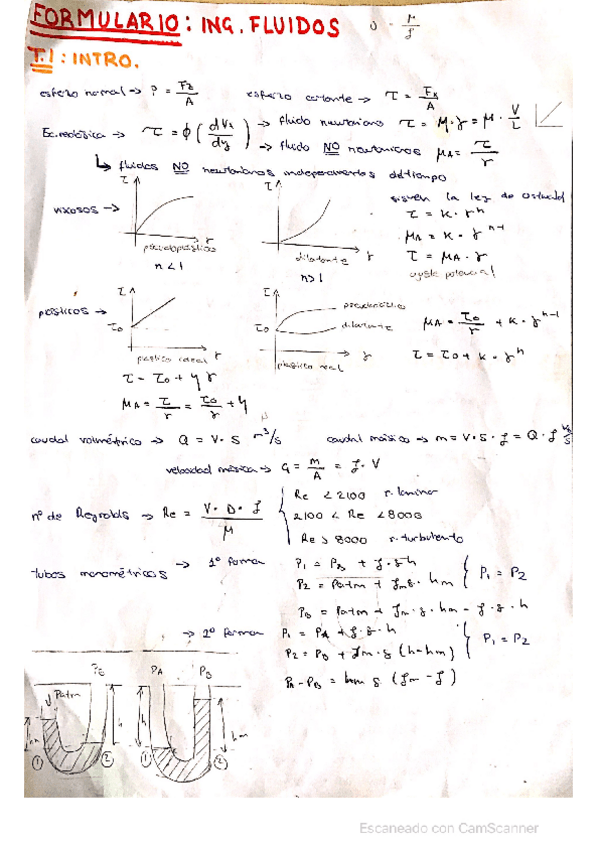 FORMULARIO: ING. FLUIDOS
T.1: INTRO.
esfezo normal → P = Fz/A esfuerzo cortante → τ = Fx/A
Ec. reológica → τ = ϕ (dVx/dy) → fluido newtoniano τ = μ · γ = μ · V/L
→ fluido NO newtonianos μA = τ/γ
↳ fluidos NO newtonianos independientes del tiempo
viscosos →
τ
γ
pseudoplástico
n < 1
τ
γ
dilatante
n > 1
siguen la ley de ostwald
τ = K · γ^n
μA = K · γ^n-1
τ = μA · γ
ajuste potencial
plásticos →
τ
τo
γ
plástico ideal
τ = τo + η γ
μA = τ/γ = τo/γ + η
τ
τo
pseudoplástico
dilatante
γ
plástico real
μA = τo/γ + K · γ^n-1
τ = τo + K · γ^n
caudal volumétrico → Q = V · S m³/s caudal másico → m = V · S · ρ = Q · ρ
velocidad másica → G = m/A = ρ · V
nº de Reynolds → Re = V · D · ρ / μ
Re < 2100 r. laminar
2100 < Re < 8000
Re > 8000 r. turbulento
tubos manométricos → 1º forma
P1 = PB + ρ · g · h
P2 = Patm + ρm · g · hm
P1 = P2
PB = Patm + ρm · g · hm - ρ · g · h
→ 2º forma P1 = PA + ρ · g · h
P2 = PB + ρm · g (h-hm)
P1 = P2
PA - PB = hm g (ρm - ρ)
Patm
PB
h
hm
1
2
PA
PB
h
hm
1
2
Escaneado con CamScanner